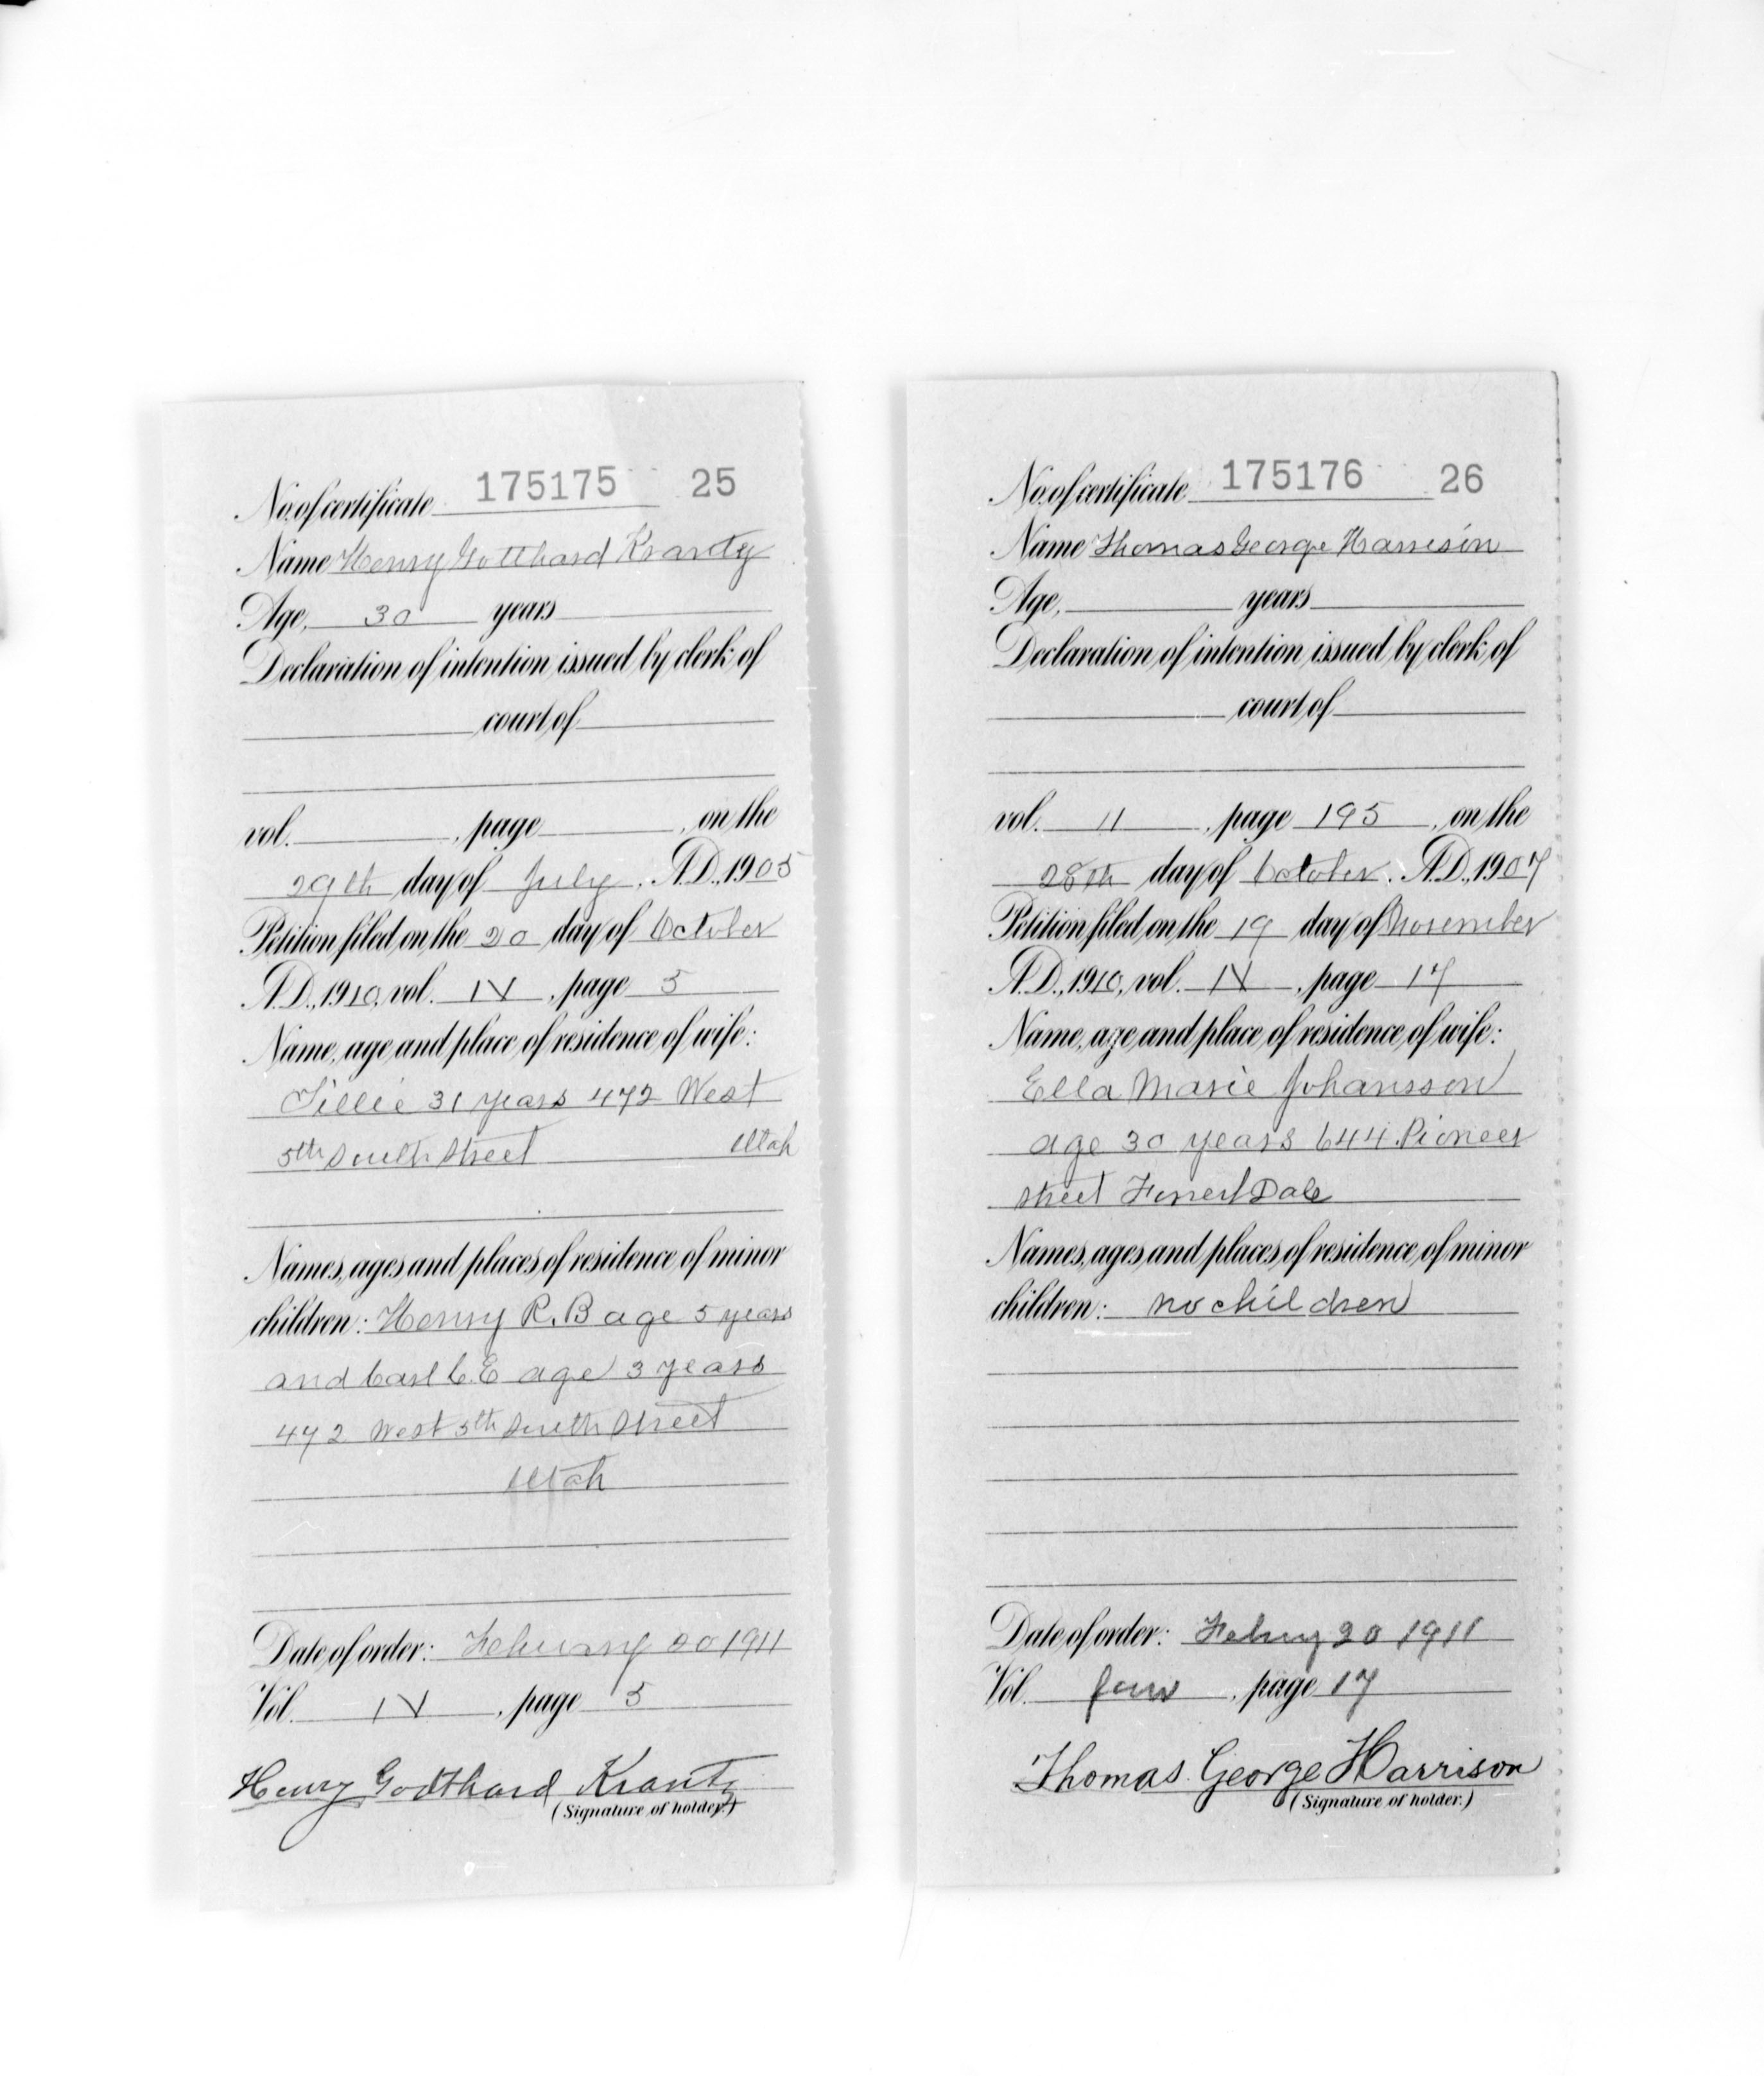 No. of certificate 175175 25
Name Henry Gotthard Krantz
Age, 30 years
Declaration of intention issued by clerk of
court of
vol. , page , on the
29th day of July, A.D., 1905
Petition filed on the 20 day of October
A.D., 1910, vol. IV, page 5
Name, age and place of residence of wife:
Tillie 31 years 472 West
5th South Street Utah
Names, ages and places of residence of minor
children: Henry R. B age 5 years
and Carl C. E age 3 years
472 West 5th South Street
Utah
Date of order: February 20 1911
Vol. IV, page 5
Henry Godthard Krantz
(Signature of holder.)
No. of certificate 175176 26
Name Thomas George Harrison
Age, years
Declaration of intention issued by clerk of
court of
vol. 11, page 195, on the
28th day of October, A.D., 1907
Petition filed on the 19 day of November
A.D., 1910, vol. IV, page 17
Name, age and place of residence of wife:
Ella Marie Johansson
age 30 years 644 Pioneer
street Forrest Dale
Names, ages and places of residence of minor
children: no children
Date of order: 20 1911
Vol. four, page 17
Thomas George Harrison
(Signature of holder.)